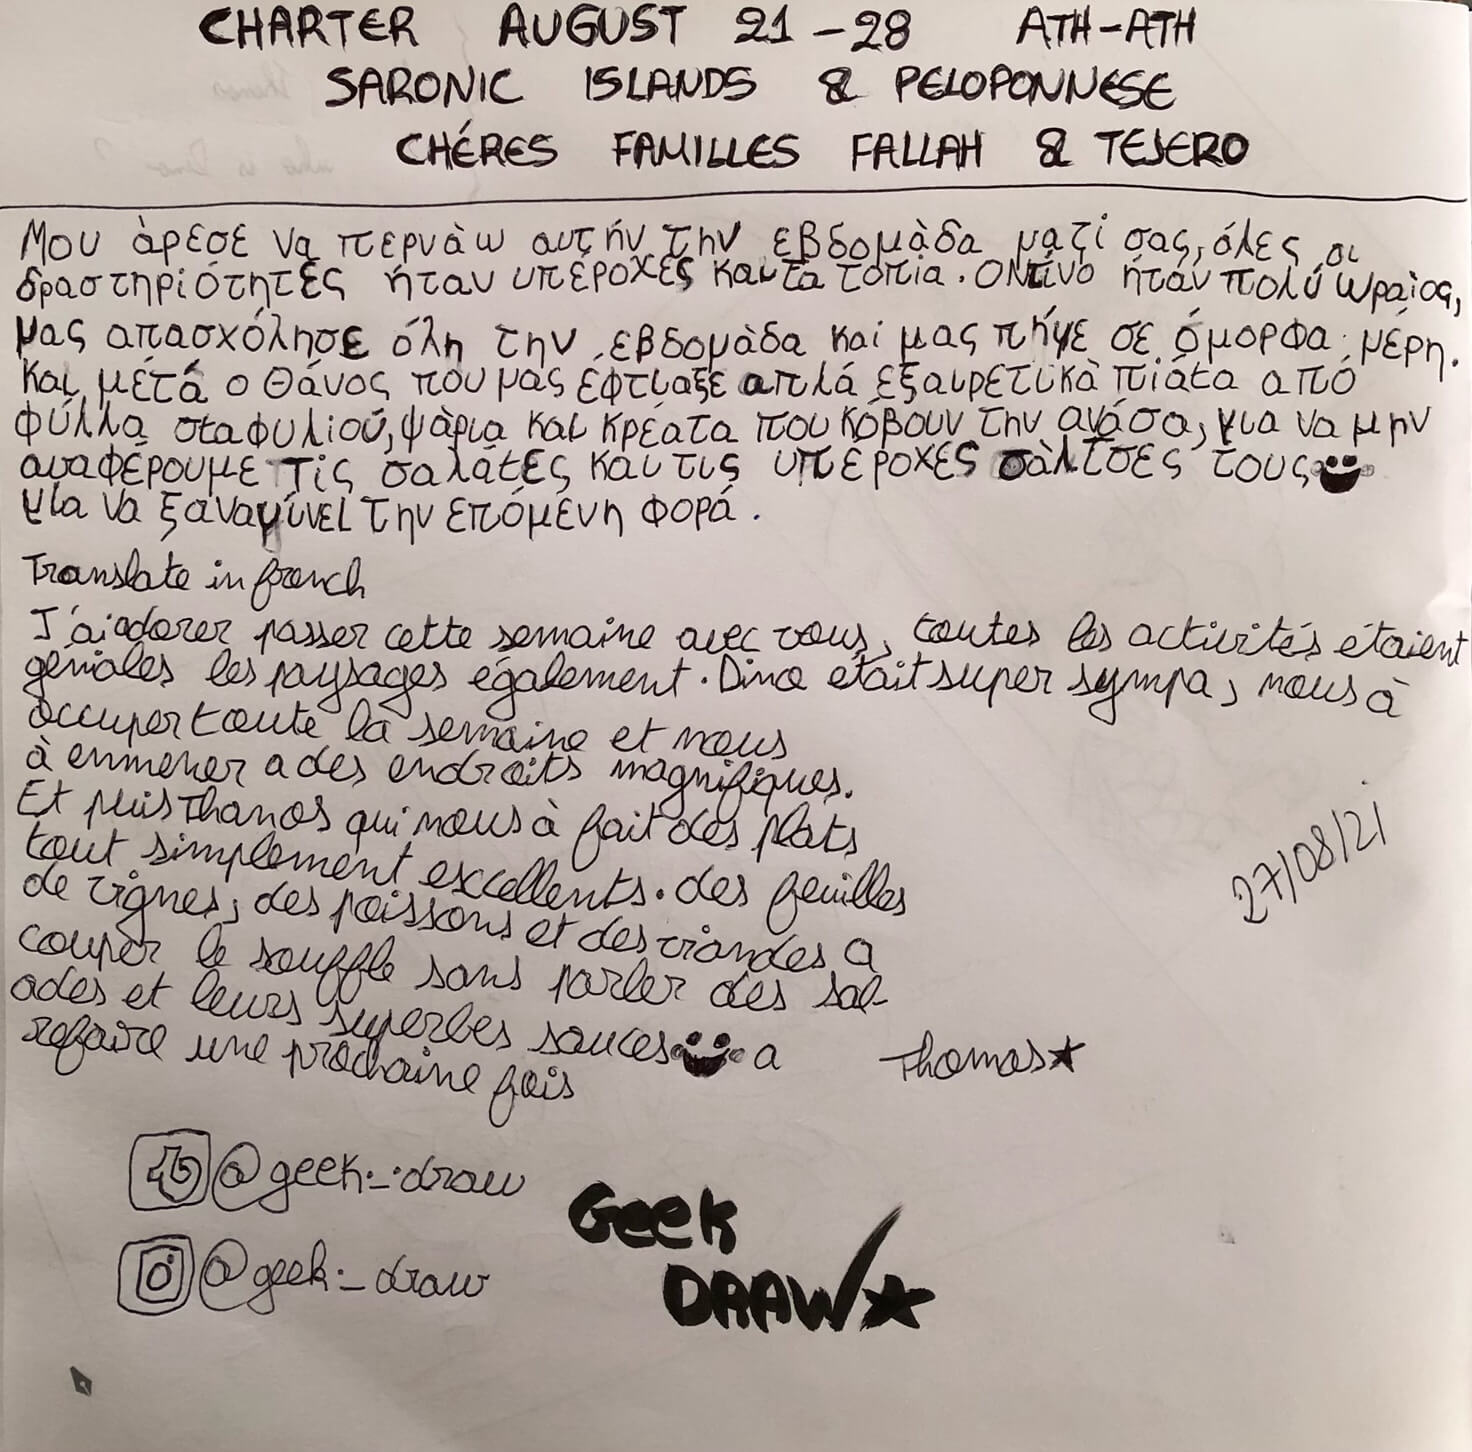 CHARTER AUGUST 21-28 ATH-ATH
SARONIC ISLANDS & PELOPONNESE
CHÉRES FAMILLES FALLAH & TEJERO
Μου άρεσε να περνάω αυτήν την εβδομάδα μαζί σας, όλες οι
δραστηριότητές ήταν υπέροχές και τα τοπία. Ο Ντίνο ήταν πολύ ωραίος,
μας απασχόλησε όλη την εβδομάδα και μας πήγε σε όμορφα μέρη.
και μετά ο Θάνος που μας έφτιαξε απλά εξαιρετικά πιάτα από
φύλλα σταφυλιού, ψάρια και κρέατα που κόβουν την ανάσα, για να μην
αναφέρουμε τις σαλάτες και τις υπέροχες σάλτσες τους
για να ξαναγίνει την επόμενη φορά.
Translate in french
J'ai adorer passer cette semaine avec vous, toutes les activités étaient
géniales les paysages également. Dino était super sympa, nous à
occuper toute la semaine et nous
à emmener a des endroits magnifiques.
Et puis Thanos qui nous à fait des plats
tout simplement excellents. des feuilles
de vignes, des poissons et des viandes a
couper le souffle sans parler des sal-
ades et leurs superbes sauces a
refaire une prochaine fois
27/08/21
Thomas
@geek._.draw
@geek._draw
Geek
DRAW